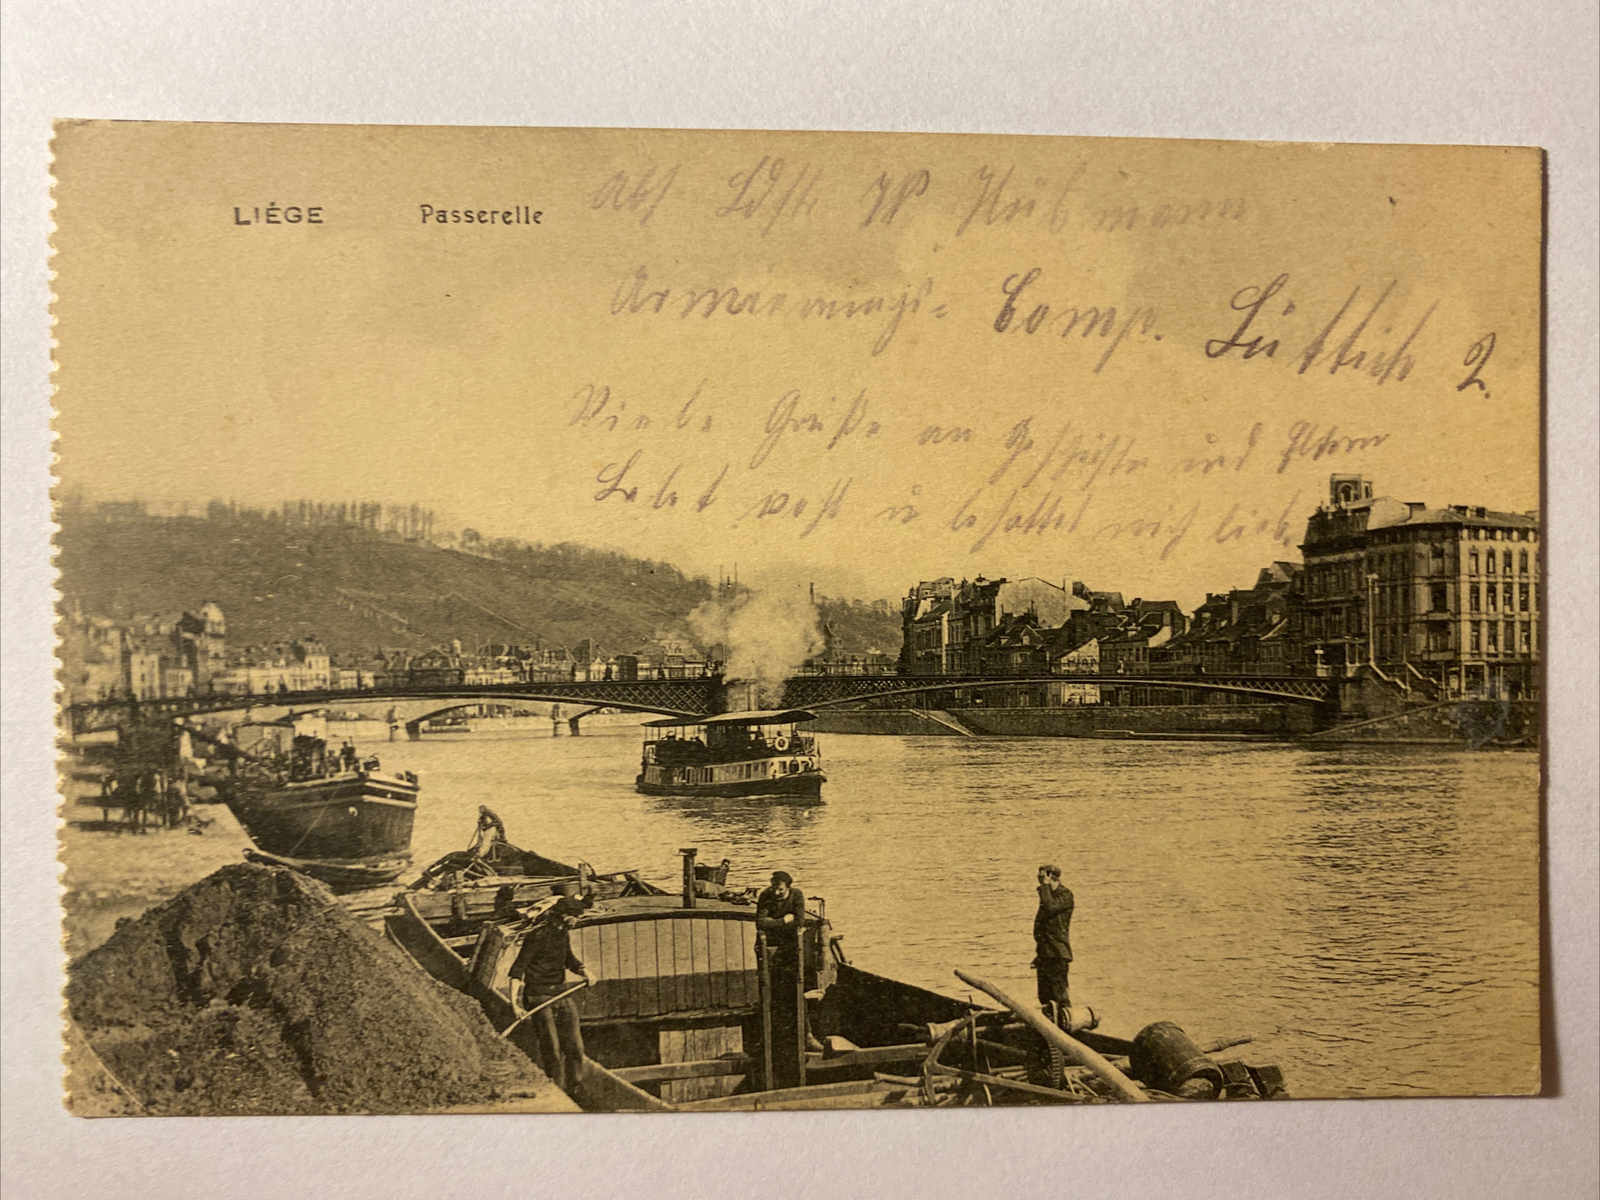 LIÉGE Passerelle
Abs Ldst.
Armierungs- Comp. Lüttich 2.
Viele Grüße an Geschwister und Eltern
Lebet wohl u behaltet mich lieb.